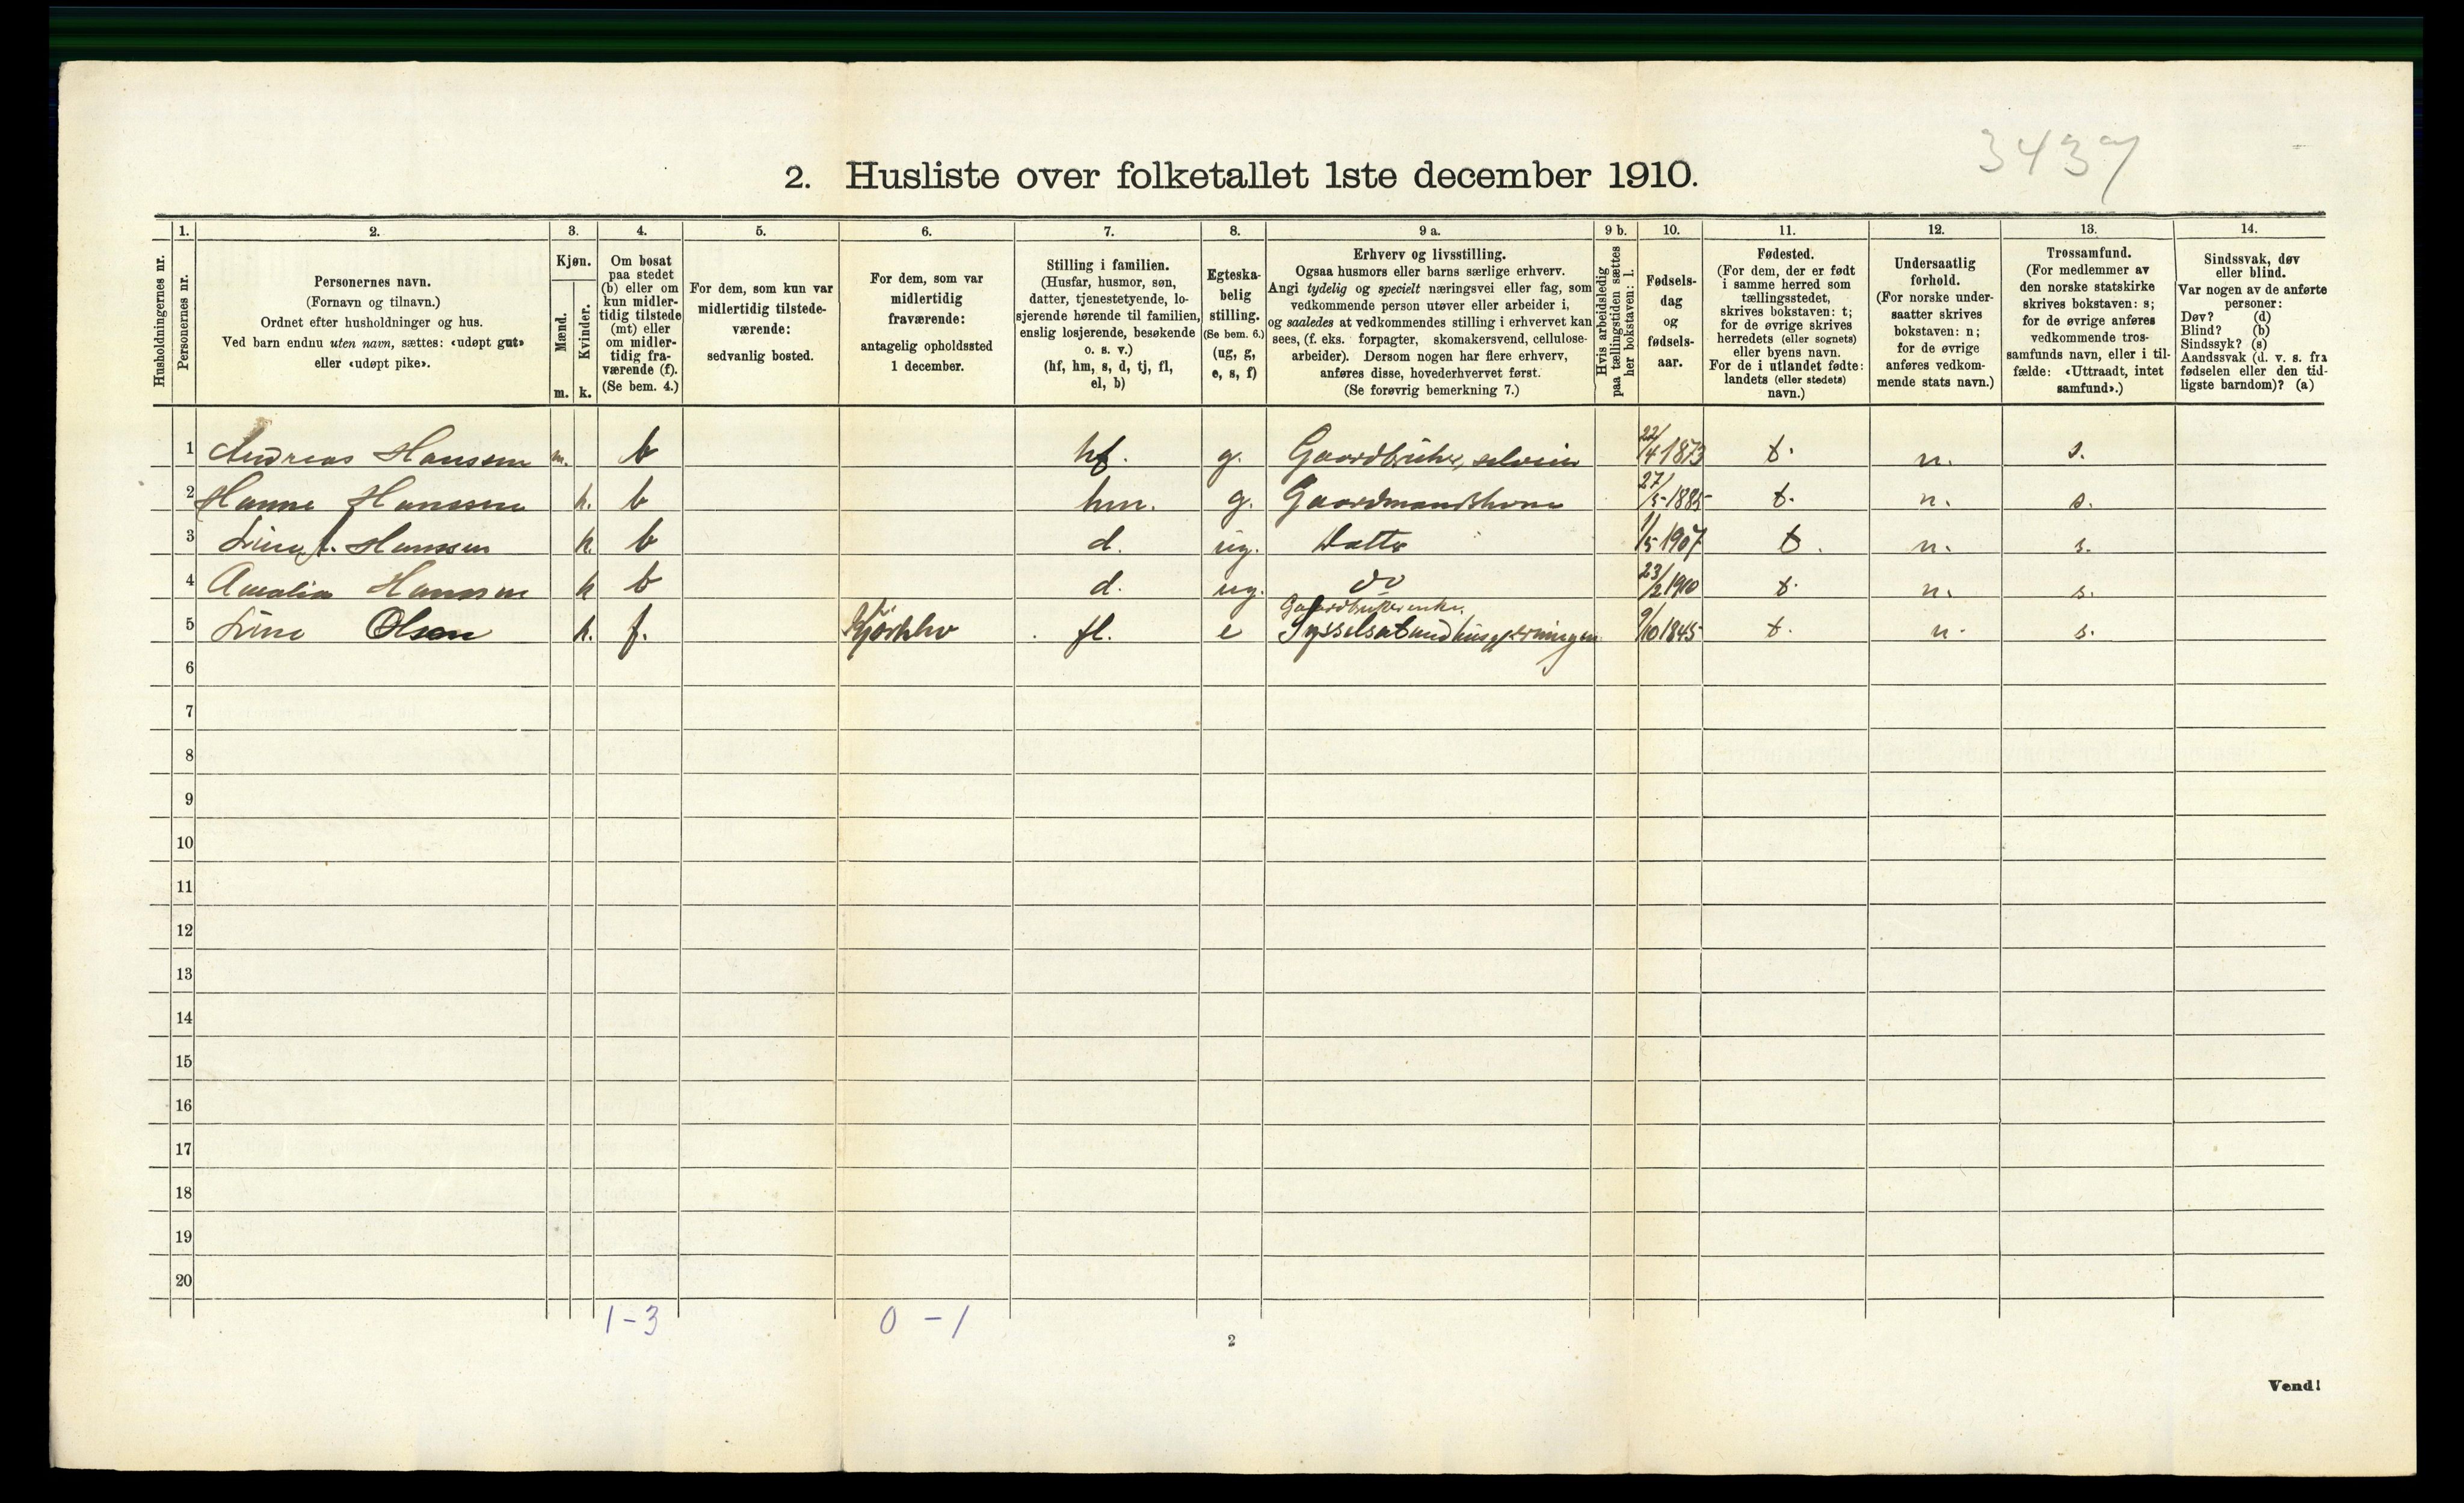 3437
2. Husliste over folketallet 1ste december 1910.
Husholdningernes nr.
1.
Personernes nr.
2.
Personernes navn.
(Fornavn og tilnavn.)
Ordnet efter husholdninger og hus.
Ved barn endnu uten navn, sættes: «udøpt gut»
eller «udøpt pike».
3.
Kjøn.
Mænd.
Kvinder.
m. k.
4.
Om bosat
paa stedet
(b) eller om
kun midler-
tidig tilstede
(mt) eller
om midler-
tidig fra-
værende (f).
(Se bem. 4.)
5.
For dem, som kun var
midlertidig tilstede-
værende:
sedvanlig bosted.
6.
For dem, som var
midlertidig
fraværende:
antagelig opholdssted
1 december.
7.
Stilling i familien.
(Husfar, husmor, søn,
datter, tjenestetyende, lo-
sjerende hørende til familien,
enslig losjerende, besøkende
o. s. v.)
(hf, hm, s, d, tj, fl,
el, b)
8.
Egteska-
belig
stilling.
(Se bem. 6.)
(ug, g,
e, s, f)
9 a.
Erhverv og livsstilling.
Ogsaa husmors eller barns særlige erhverv.
Angi tydelig og specielt næringsvei eller fag, som
vedkommende person utøver eller arbeider i,
og saaledes at vedkommendes stilling i erhvervet kan
sees, (f. eks. forpagter, skomakersvend, cellulose-
arbeider). Dersom nogen har flere erhverv,
anføres disse, hovederhvervet først.
(Se forøvrig bemerkning 7.)
9 b.
Hvis arbeidsledig
paa tællingstiden sættes
her bokstaven: l.
10.
Fødsels-
dag
og
fødsels-
aar.
11.
Fødested.
(For dem, der er født
i samme herred som
tællingsstedet,
skrives bokstaven: t;
for de øvrige skrives
herredets (eller sognets)
eller byens navn.
For de i utlandet fødte:
landets (eller stedets)
navn.)
12.
Undersaatlig
forhold.
(For norske under-
saatter skrives
bokstaven: n;
for de øvrige
anføres vedkom-
mende stats navn.)
13.
Trossamfund.
(For medlemmer av
den norske statskirke
skrives bokstaven: s;
for de øvrige anføres
vedkommende tros-
samfunds navn, eller i til-
fælde: «Uttraadt, intet
samfund».)
14.
Sindssvak, døv
eller blind.
Var nogen av de anførte
personer:
Døv? (d)
Blind? (b)
Sindssyk? (s)
Aandssvak (d. v. s. fra
fødselen eller den tid-
ligste barndom)? (a)
1 Andreas Hanssen m. b hf. g. Gaardbruker, selveier 22/4 1873 t. n. s.
2 Hanna Hanssen k. b hm. g. Gaardmandskone 27/5-1885 t. n. s.
3 Lina Hanssen k. b d. ug. Datter 1/5 1907 t. n. s.
4 Amalia Hanssen k b d. ug. do 23/2 1910 t. n. s.
Gaardbrukerenke.
5 Lina Olsen k. f. fl. e Sysselsat med husgjerningen 9/10 1845 t. n. s.
6
7
8
9
10
11
12
13
14
15
16
17
18
19
20
1-3
0-1
2
Vend!